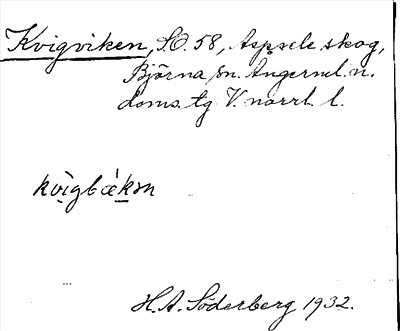 Kvigviken, S.O. 58, Aspsele skog,
Björna sn. Ångerml. n.
doms. tg V. norrl. l.
kvìgbǽkən
H.A. Söderberg 1932.